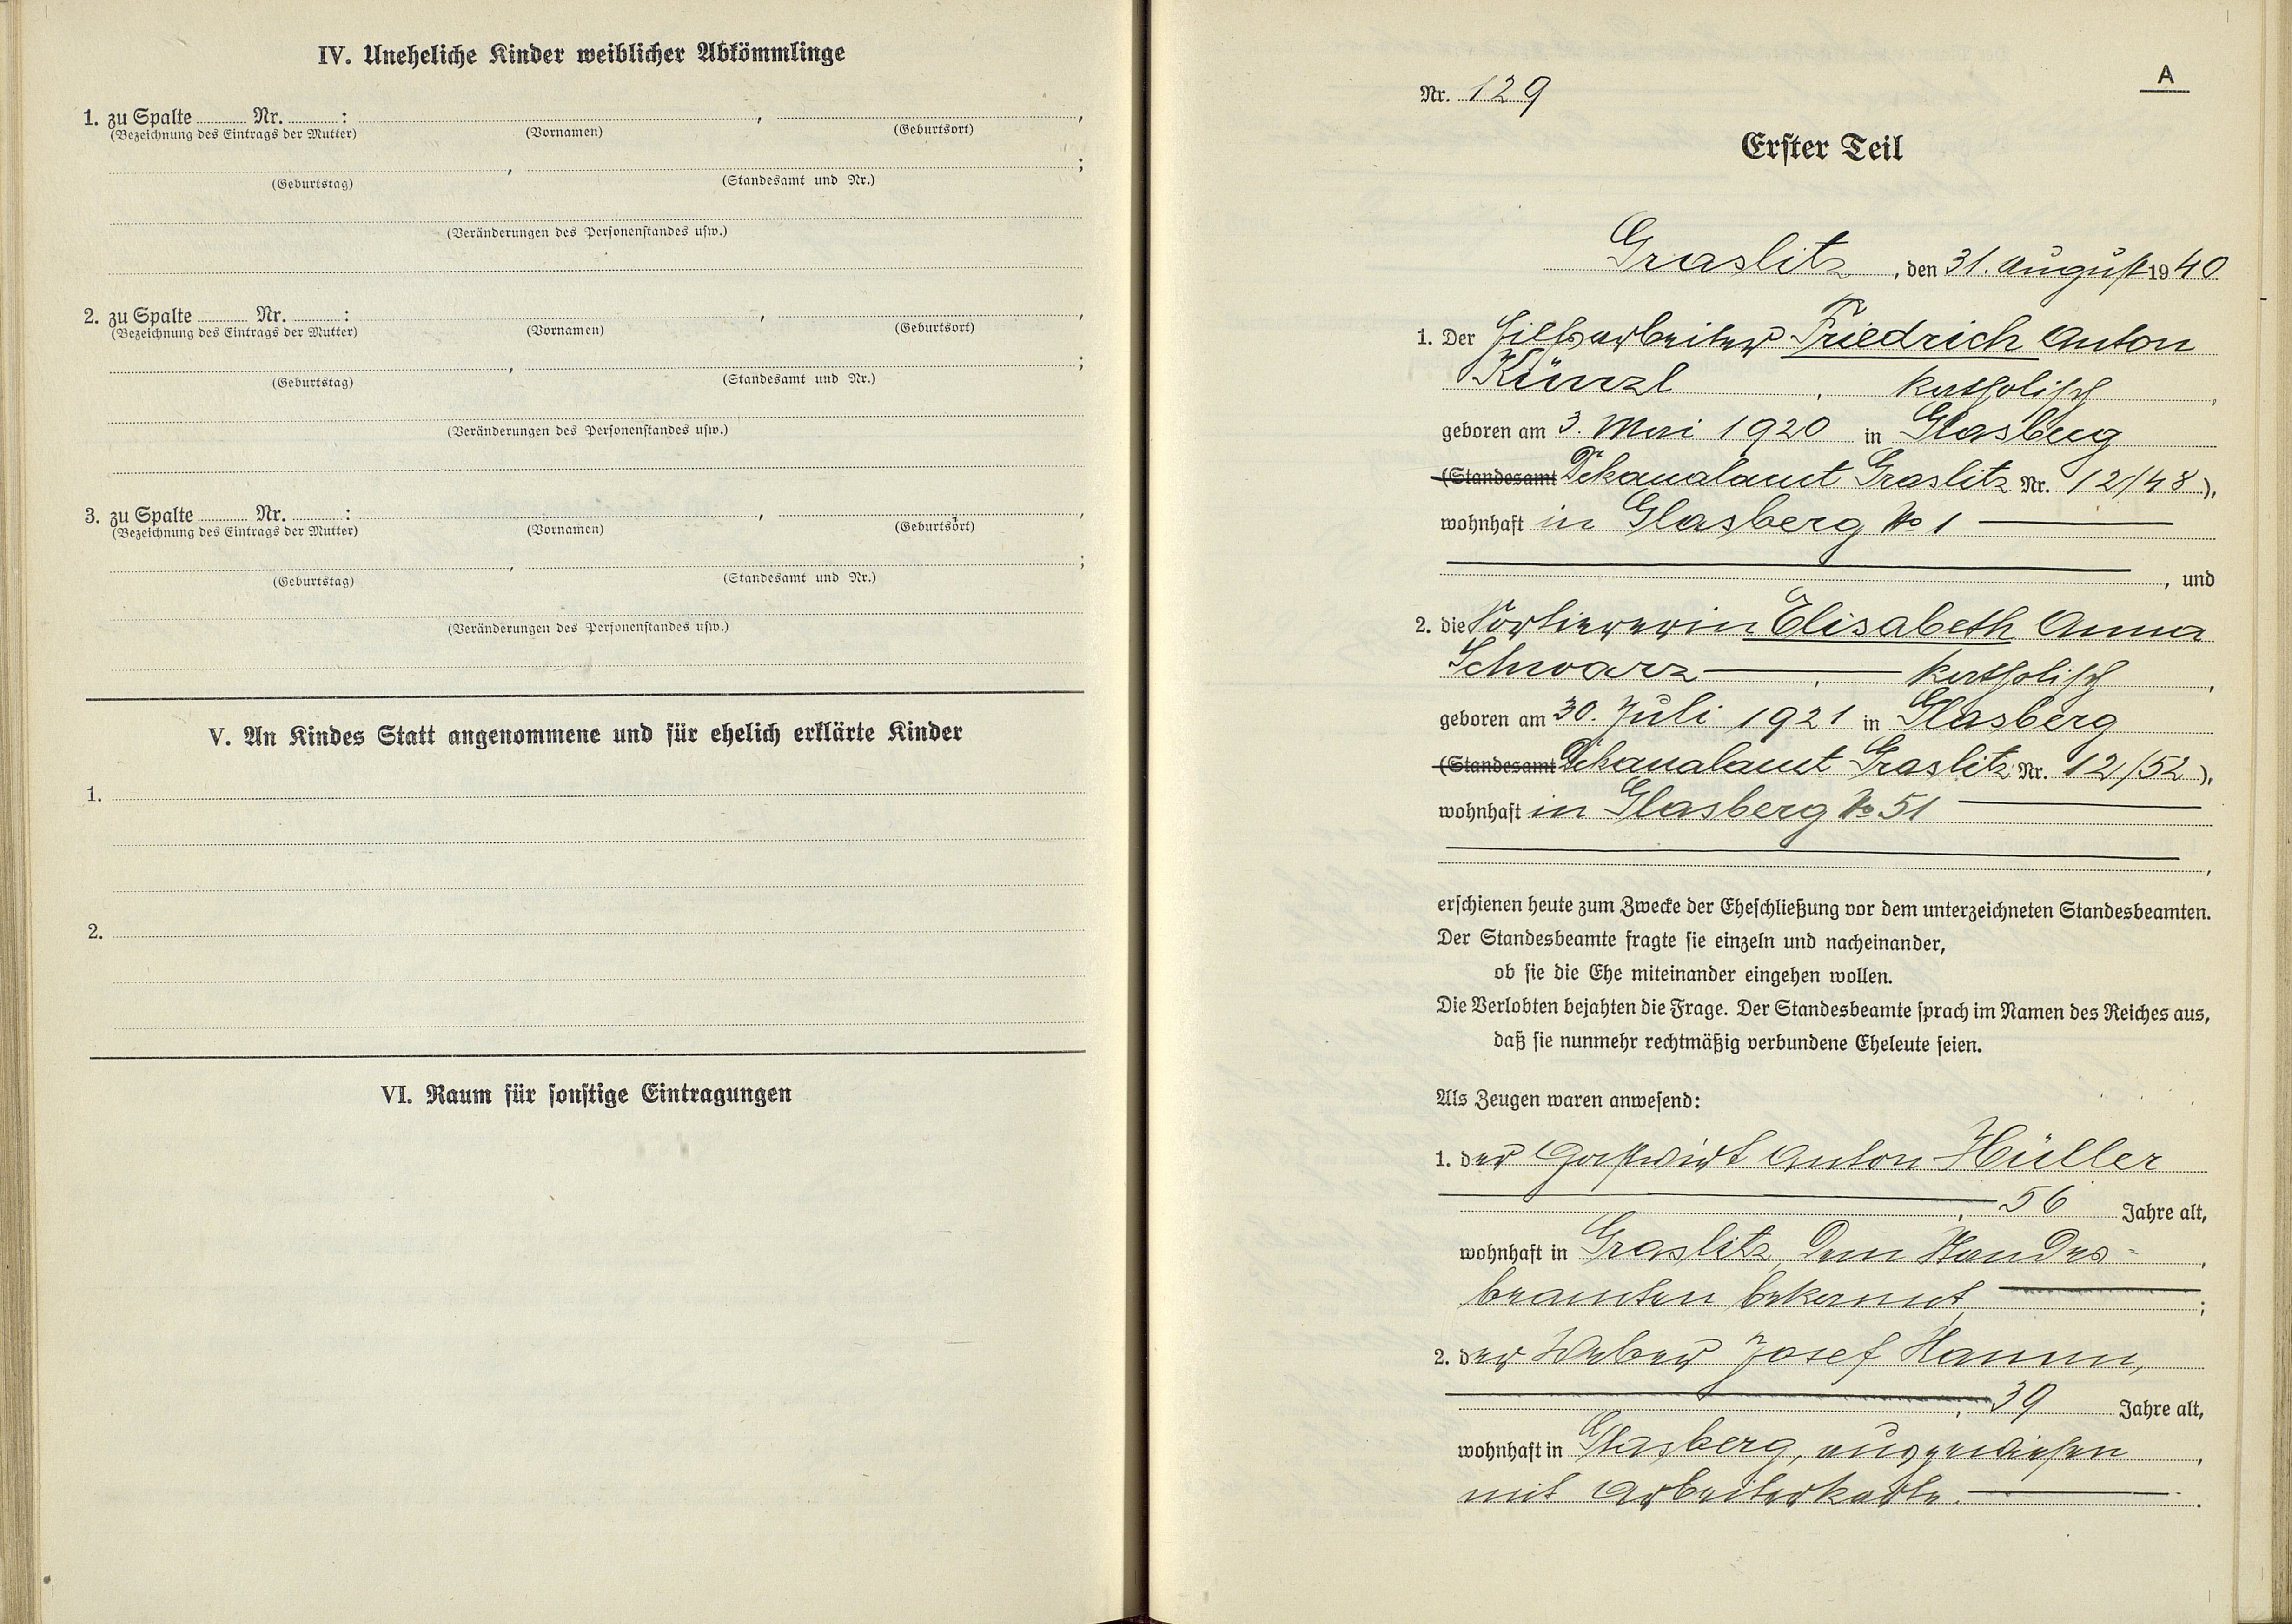 IV. Uneheliche Kinder weiblicher Abkömmlinge
1. zu Spalte ........ Nr. ........ : , ,
(Bezeichnung des Eintrags der Mutter) (Vornamen) (Geburtsort)
, ;
(Geburtstag) (Standesamt und Nr.)
(Veränderungen des Personenstandes usw.)
2. zu Spalte ........ Nr. ........ : , ,
(Bezeichnung des Eintrags der Mutter) (Vornamen) (Geburtsort)
, ;
(Geburtstag) (Standesamt und Nr.)
(Veränderungen des Personenstandes usw.)
3. zu Spalte ........ Nr. ........ : , ,
(Bezeichnung des Eintrags der Mutter) (Vornamen) (Geburtsort)
, ;
(Geburtstag) (Standesamt und Nr.)
(Veränderungen des Personenstandes usw.)
V. An Kindes Statt angenommene und für ehelich erklärte Kinder
1.
2.
VI. Raum für sonstige Eintragungen
A
Nr. 129
Erster Teil
Graslitz, den 31. August 1940
1. Der Hilfsarbeiter Friedrich Anton
Künzl, katholisch,
geboren am 3. Mai 1920 in Glasberg
(Standesamt Dekanalamt Graslitz Nr. 12/48),
wohnhaft in Glasberg No 1
, und
2. die Sortiererin Elisabeth Anna
Schwarz, katholisch,
geboren am 30. Juli 1921 in Glasberg
(Standesamt Dekanalamt Graslitz Nr. 12/52),
wohnhaft in Glasberg No 51
,
erschienen heute zum Zwecke der Eheschließung vor dem unterzeichneten Standesbeamten.
Der Standesbeamte fragte sie einzeln und nacheinander,
ob sie die Ehe miteinander eingehen wollen.
Die Verlobten bejahten die Frage. Der Standesbeamte sprach im Namen des Reiches aus,
daß sie nunmehr rechtmäßig verbundene Eheleute seien.
Als Zeugen waren anwesend:
1. der Gastwirt Anton Hüller
, 56 Jahre alt,
wohnhaft in Graslitz, dem Standes-,
beamten bekannt, ;
2. der Weber Josef Hamm,
, 39 Jahre alt,
wohnhaft in Glasberg, ausgewiesen,
mit Arbeiterkarte.